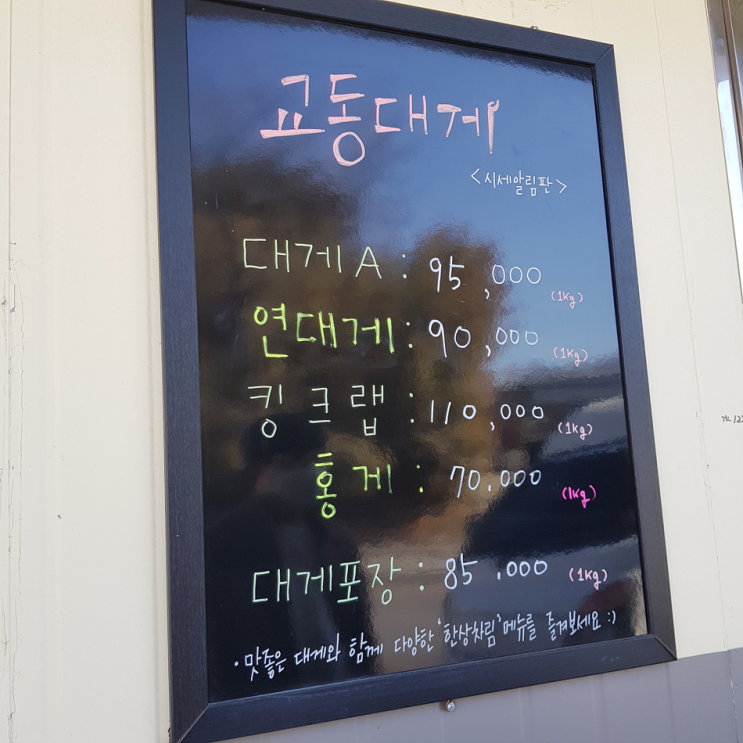 교동대게
<시세알림판>
대게A : 95,000 (1kg)
연대게 : 90,000 (1kg)
킹크랩 : 110,000 (1kg)
홍게 : 70,000 (1kg)
대게포장 : 85,000 (1kg)
·맛좋은 대게와 함께 다양한 '한상차림' 메뉴를 즐겨보세요 :)